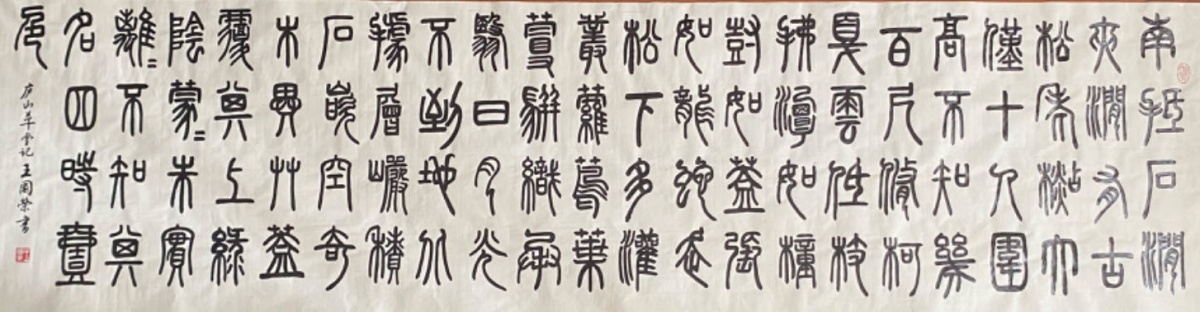 南抵石澗
夾澗有古
松老杉大
僅十人圍
高不知幾
百尺修柯
戛雲低枝
拂潭如幢
豎如蓋張
如龍蛇走
松下多灌
叢蘿蔦葉
蔓駢織承
翳日月光
不到地北
據層巖積
石嵌空奇
木異草蓋
覆其上綠
陰蒙〻朱實
離〻不知其
名四時壹
色
庐山草堂记 王國榮書